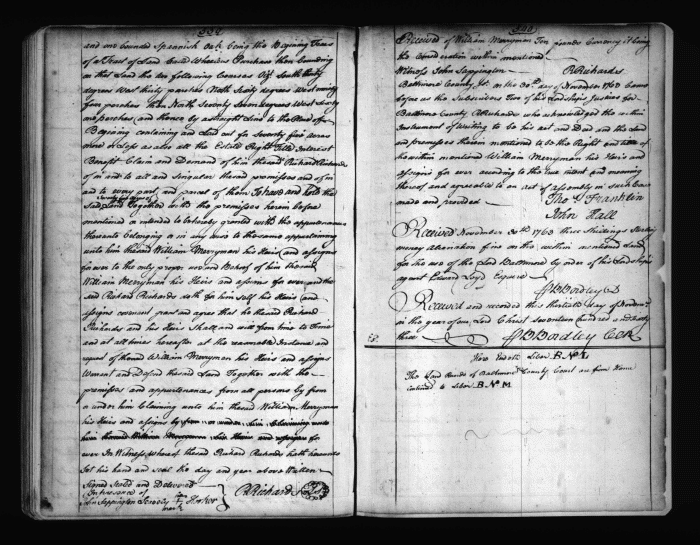 and one bounded Spanish Oak being the Begining Trees
of a Tract of Land Called Wheelers Purchase then bounding
on that Land the ten following Courses Viz South thirty
degrees West thirty perches North Sixty degrees West
four perches then North Seventy Seven degrees West Sixty
one perches and thence by a straight Line to the place of
Begining containing and Laid out for Seventy five acres
more or Less as also all the Estate Right Title Interest
Benefit Claim and Demand of him the said Richard Richards
of in and to all and Singular the said premises and of in
and to every part and parcel of them To have and hold the
Said Land Together with the premisses herein before
mentioned or intended to be hereby granted with the appurtenances
thereunto belonging or in any wise to the same appertaining
unto him the said William Merryman his Heirs and assigns
for ever to the only proper use and Behoof of him the said
William Merryman his Heirs and assigns for ever and the
said Richard Richards doth for him self his Heirs and
assigns covenant and agree that he the said Richard
Richards and his Heirs Shall and will from time to Time
and at all times hereafter at the reasonable Instance and
request of the said William Merryman his Heirs and assigns
Warrant and Defend the said Land Together with the
premisses and appurtenances from all persons by from
or under him Claiming unto him the said William Merryman
his Heirs and assigns by from or under him Claiming unto
him the said William Merryman his Heirs and assigns for
ever In Witness whereof the said Richard Richards hath hereunto
Set his hand and seal the day and year above Written
Signed Sealed and Delivered
In the presence of
John Sappington
mark
R Richards
Received of William Merryman Ten pounds Currency it being
the Consideration within mentioned
Witness John Sappington R Richards
Baltimore County Sct. on the 30th day of November 1763 Came
before us the Subscribers Two of his Lordships Justices for
Baltimore County R Richards who acknowledged the within
Instrument of Writing to be his act and Deed and the Land
and premisses therein mentioned to be the Right and
of the within mentioned William Merryman his Heirs and
assigns for ever according to the true intent and meaning
thereof and agreeable to an act of assembly in such Case
made and provided
Tho Franklin
John Hall
Received November 30th 1763 three Shillings Sterling
money Alienation fine on the within mentioned Land
for the use of the Lord Baltimore by order of his Lordships
agent Edward Loyd Esquire
B Bordley
Received and recorded this thirtieth day of November
in the year of our Lord Christ seventeen hundred and sixty
three B Bordley Clk
Here Endeth Liber B No L
The Land Records of Baltimore County Court are from Hence
continued to Liber B No M